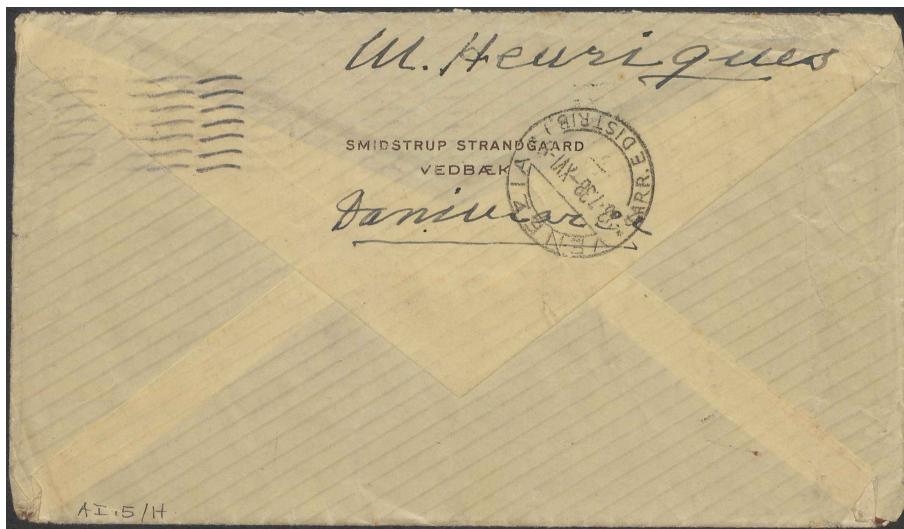 M. Henriques
SMIDSTRUP STRANDGAARD
VEDBÆK
Danimarca
VENEZIA ARR. E DISTRIB.
7.38-XVI
AI.5/H